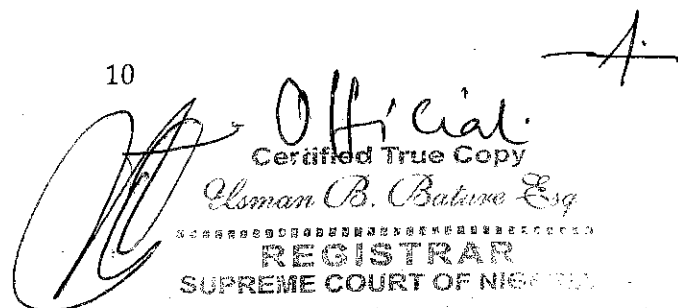 10
Official.
Certified True Copy
Usman B. Bature Esq
REGISTRAR
SUPREME COURT OF